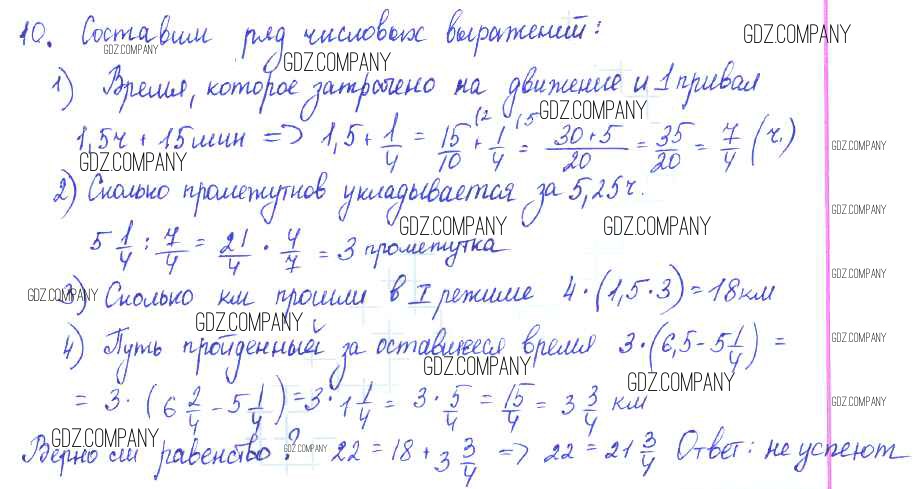 10. Составим ряд числовых выражений:
GDZ.COMPANY
GDZ.COMPANY
GDZ.COMPANY
1) Время, которое затрачено на движение и 1 привал
GDZ.COMPANY
1,5ч + 15мин => 1,5 + 1/4 = 15/10 (2 + 1/4 (5 = 30+5/20 = 35/20 = 7/4 (ч.)
GDZ.COMPANY
GDZ.COMPANY
2) Сколько промежутков укладывается за 5,25ч.
GDZ.COMPANY
GDZ.COMPANY
GDZ.COMPANY
5 1/4 : 7/4 = 21/4 · 4/7 = 3 промежутка
GDZ.COMPANY
GDZ.COMPANY
3) Сколько км прошли в I режиме 4·(1,5·3)=18км
GDZ.COMPANY
GDZ.COMPANY
4) Путь пройденный за оставшееся время 3·(6,5-5 1/4) =
GDZ.COMPANY
GDZ.COMPANY
= 3·(6 2/4 - 5 1/4) = 3·1 1/4 = 3·5/4 = 15/4 = 3 3/4 км
GDZ.COMPANY
GDZ.COMPANY
GDZ.COMPANY
GDZ.COMPANY
Верно ли равенство? 22 = 18 + 3 3/4 => 22 = 21 3/4 Ответ: не успеют